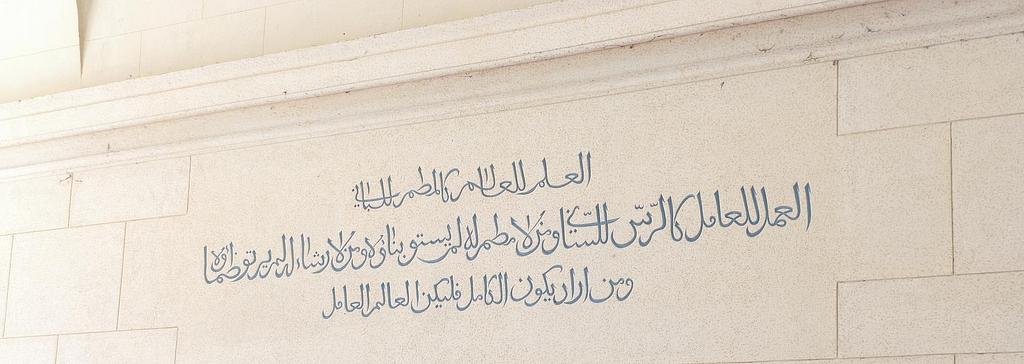 العلم للعالم كالمطمر للباني
العمل للعامل كالرّسّ للسّاني ومن لا مطمر له لم يستو بناؤه ومن لا رشاء له لم يرتو ظماؤه
ومن اراد يكون الكامل فليكن العالم العامل